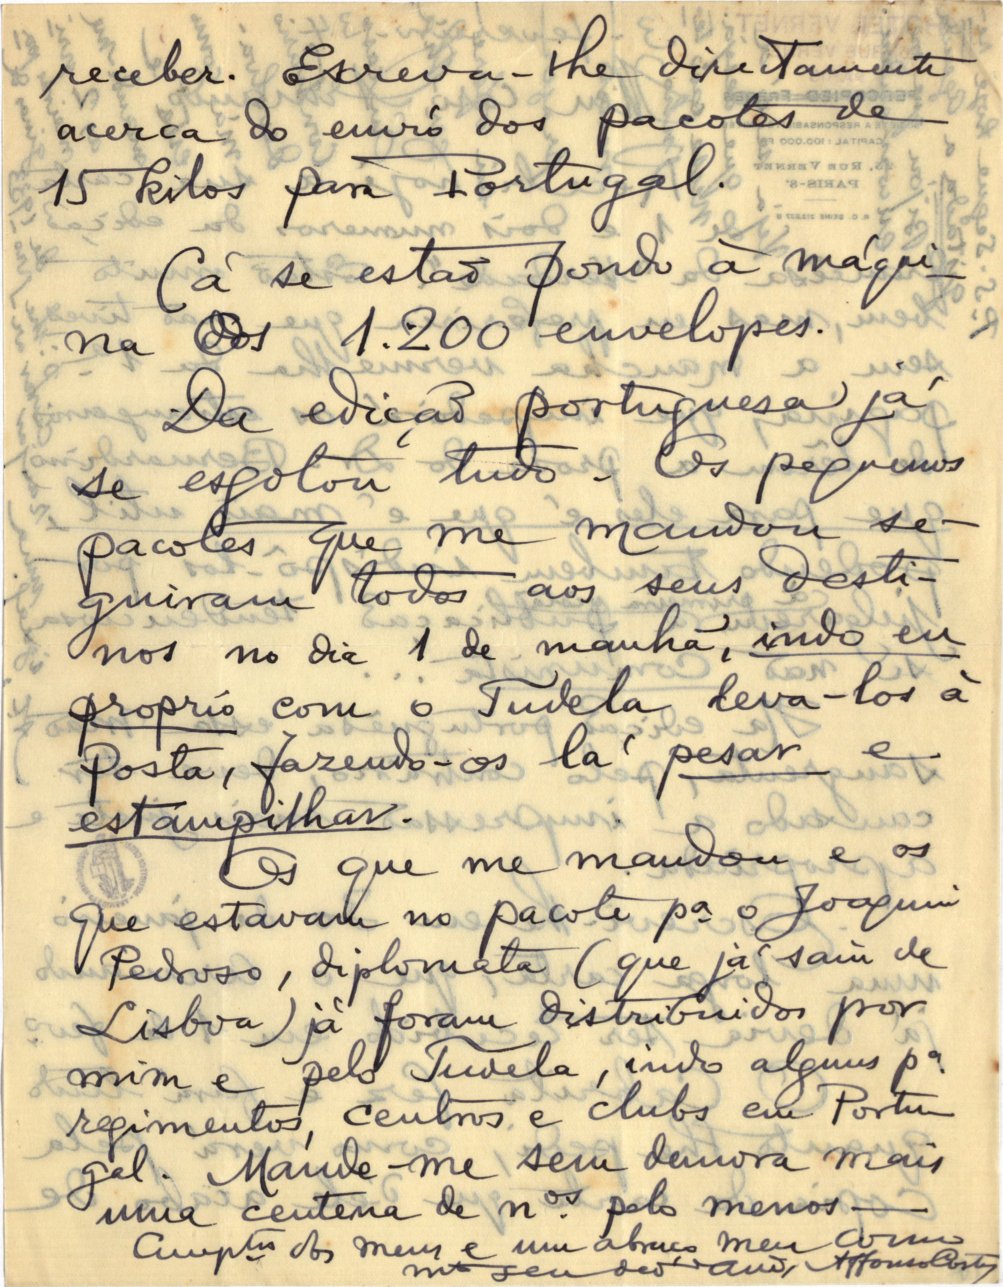 receber. Escreva-lhe directamente
acerca do envio dos pacotes de
15 kilos para Portugal.
Cá se estão pondo à máqui-
na os 1.200 envelopes.
Da edição portuguesa já
se esgotou tudo. Os pequenos
pacotes que me mandou se-
guiram todos aos seus desti-
nos no dia 1 de manhã, indo eu
proprio com o Tudela leva-los à
Posta, fazendo-os lá pesar e
estampilhar.
Os que me mandou e os
que estavam no pacote pª o Joaquim
Pedroso, diplomata (que já saiu de
Lisboa) já foram distribuidos por
mim e pelo Tudela, indo alguns pª
regimentos, centros e clubs em Portu
gal. Mande-me sem demora mais
uma centena de nos. pelo menos —
Cumptos dos meus e um abraço meu como
mto seu Affonso Costa